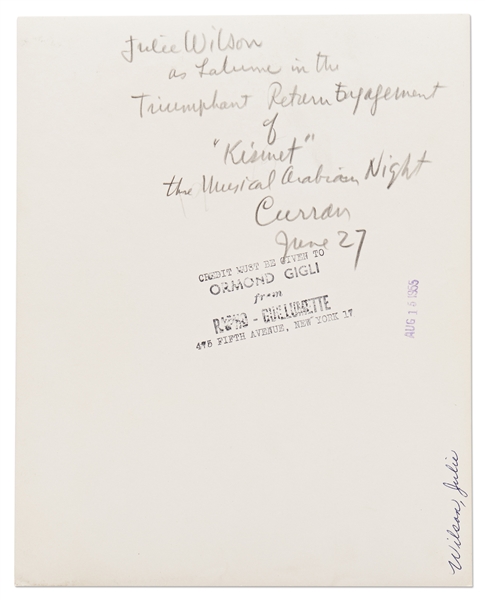 Julie Wilson
as Lalume in the
Triumphant Return Engagement
of
"Kismet"
the Musical Arabian Night
Curran
June 27
CREDIT MUST BE GIVEN TO
ORMOND GIGLI
from
RAPHO - GUILLUMETTE
475 FIFTH AVENUE, NEW YORK 17
AUG 1 1955
Wilson, Julie